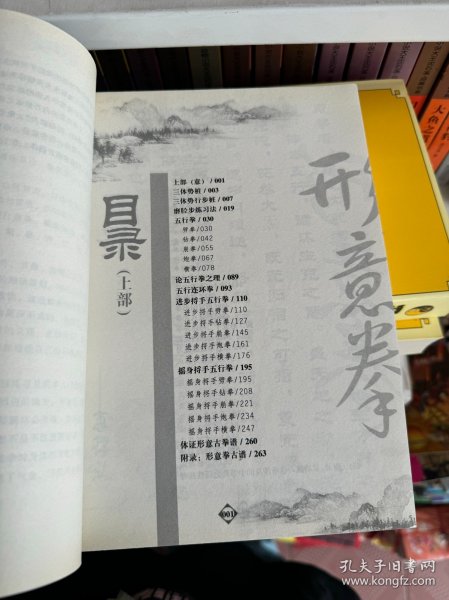 目录
(上部)
上部（意）/ 001
三体势桩 / 003
三体势行步桩 / 007
磨胫步练习法 / 019
五行拳 / 030
劈拳/030
钻拳/042
崩拳/055
炮拳/067
横拳/078
论五行拳之理 / 089
五行连环拳 / 093
进步捋手五行拳 / 110
进步捋手劈拳/110
进步捋手钻拳/127
进步捋手崩拳/145
进步捋手炮拳/161
进步捋手横拳/176
摇身捋手五行拳 / 195
摇身捋手劈拳/195
摇身捋手钻拳/208
摇身捋手崩拳/221
摇身捋手炮拳/234
摇身捋手横拳/247
体证形意古拳谱 / 260
附录：形意拳古谱 / 263
001
形意拳
孔夫子旧书网
www.kongfz.com